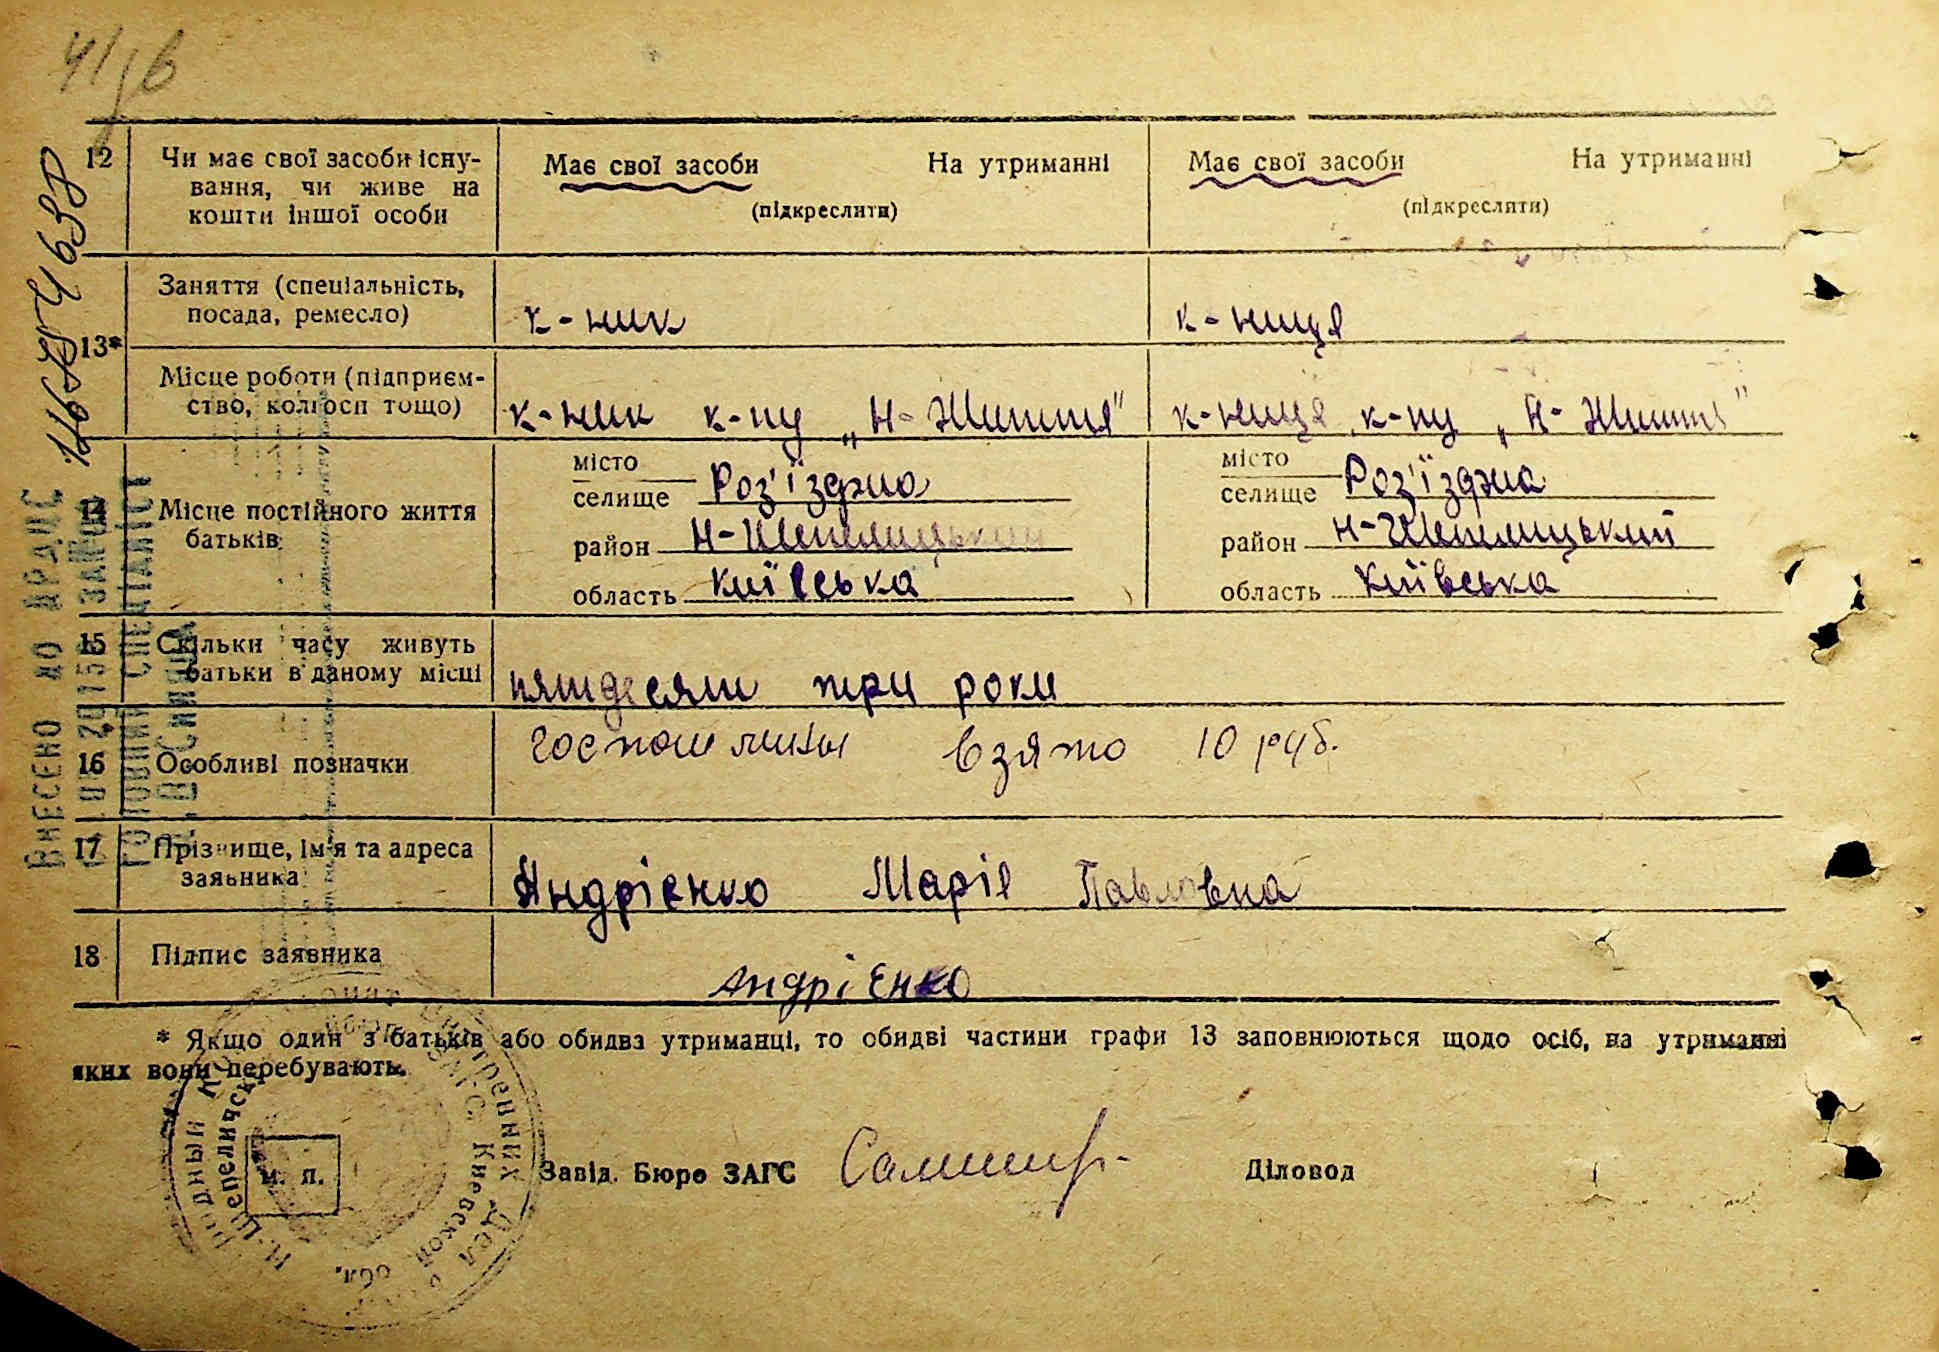 12 Чи має свої засоби існу-
вання, чи живе на
кошти іншої особи
Має свої засоби На утриманні
(підкреслити)
Має свої засоби На утриманні
(підкреслити)
13*
Заняття (спеціальність,
посада, ремесло)
к-ник
к-ниця
Місце роботи (підприєм-
ство, колгосп тощо)
к-ник к-пу „Н-Життя"
к-ниця к-пу „Н-Життя"
14 Місце постійного життя
батьків
місто
селище Роз'їзджа
район Н-Шепелицький
область Київська
місто
селище Роз'їзджа
район Н-Шепелицький
область Київська
15 Скільки часу живуть
батьки в даному місці
пятдесят три роки
16 Особливі позначки
госпошлины взято 10 руб.
17 Прізвище, ім'я та адреса
заявника
Андрієнко Марія Павловна
18 Підпис заявника
Андрієнко
* Якщо один з батьків або обидва утриманці, то обидві частини графи 13 заповнюються щодо осіб, на утриманні
яких вони перебувають.
м. п.
Завід. Бюро ЗАГС
Діловод
Внесено до ДРАЦС
Головний спеціаліст